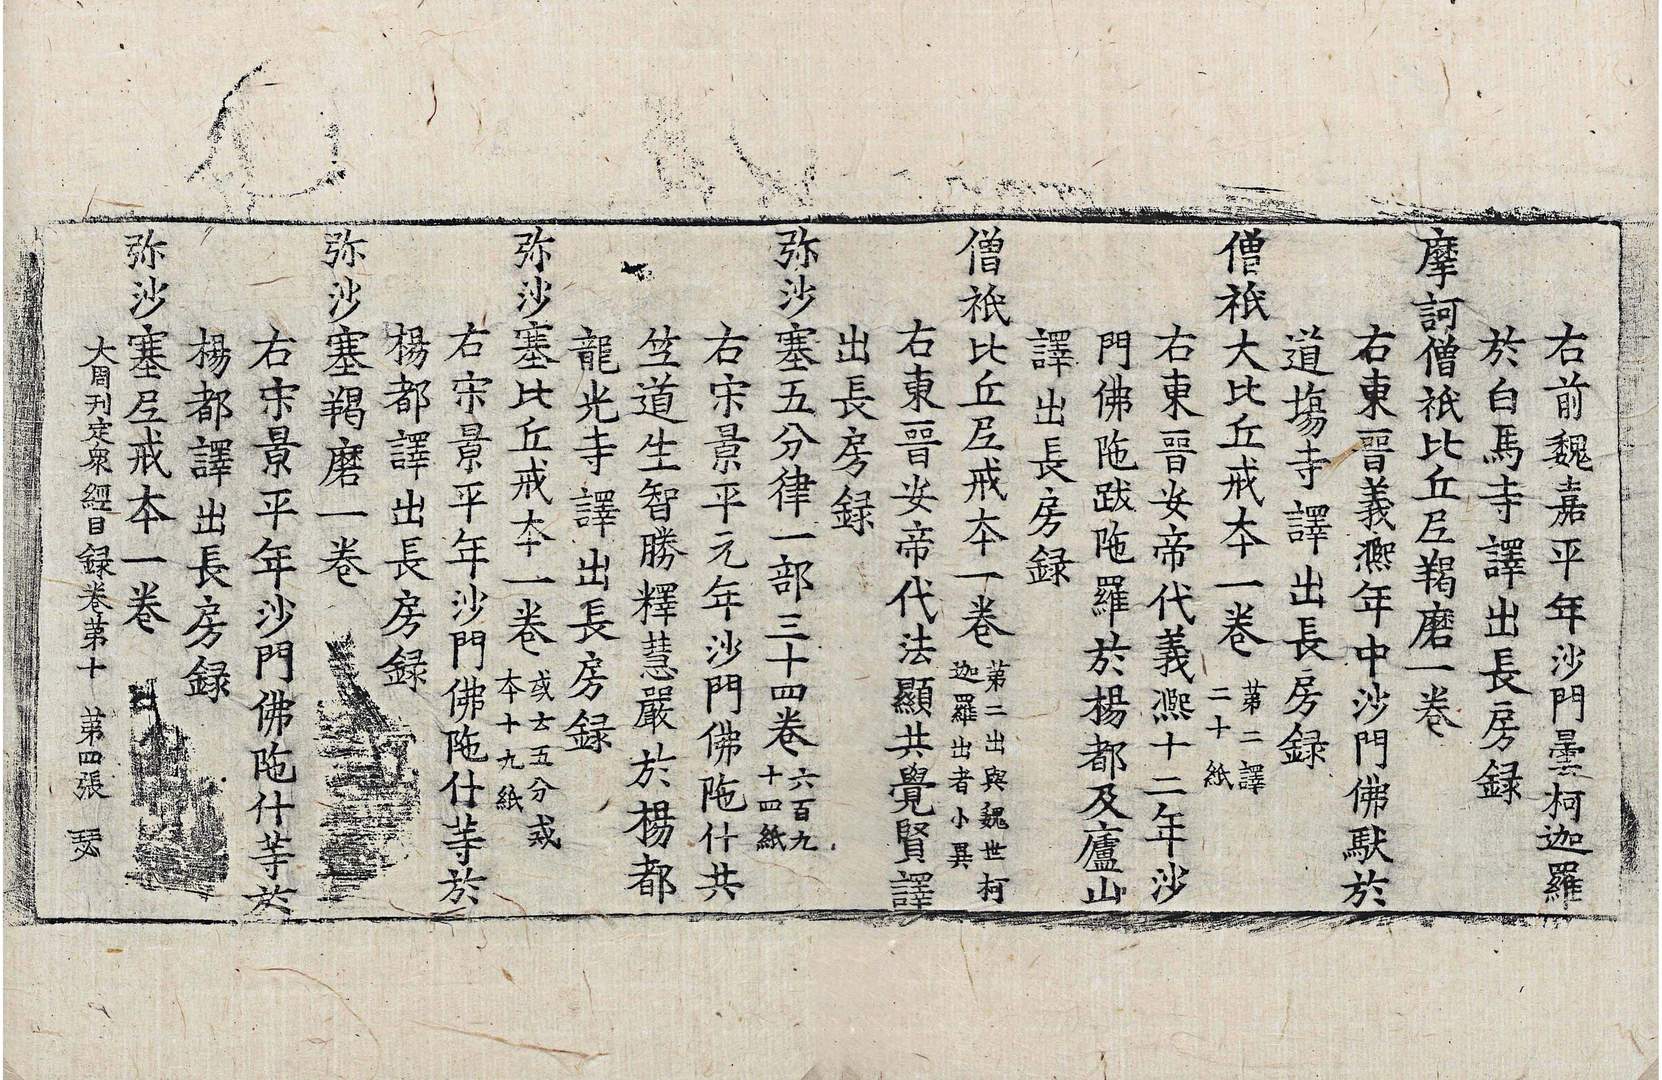 右前魏嘉平年沙門曇柯迦羅
於白馬寺譯出長房録
摩訶僧祇比丘尼羯磨一卷
右東晉義熈年中沙門佛馱於
道塲寺譯出長房録
僧祇大比丘戒本一卷 第二譯
二十紙
右東晉安帝代義熈十二年沙
門佛陁跋陁羅於楊都及廬山
譯出長房録
僧祇比丘尼戒本一卷 第二出與魏世柯
迦羅出者小異
右東晉安帝代法顯共覺賢譯
出長房録
弥沙塞五分律一部三十四卷 六百九
十四紙
右宋景平元年沙門佛陁什共
竺道生智勝釋慧嚴於楊都
龍光寺譯出長房録
弥沙塞比丘戒本一卷 或云五分戒
本十九紙
右宋景平年沙門佛陁什等於
楊都譯出長房録
弥沙塞羯磨一卷
右宋景平年沙門佛陁什等於
楊都譯出長房録
弥沙塞尼戒本一卷
大周刊定衆經目録卷第十 第四張 瑟